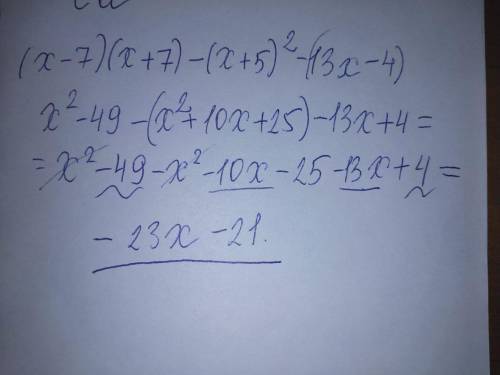 (x-7)(x+7)-(x+5)²-(13x-4)
x²-49-(x²+10x+25)-13x+4=
=x²-49-x²-10x-25-13x+4=
-23x-21.